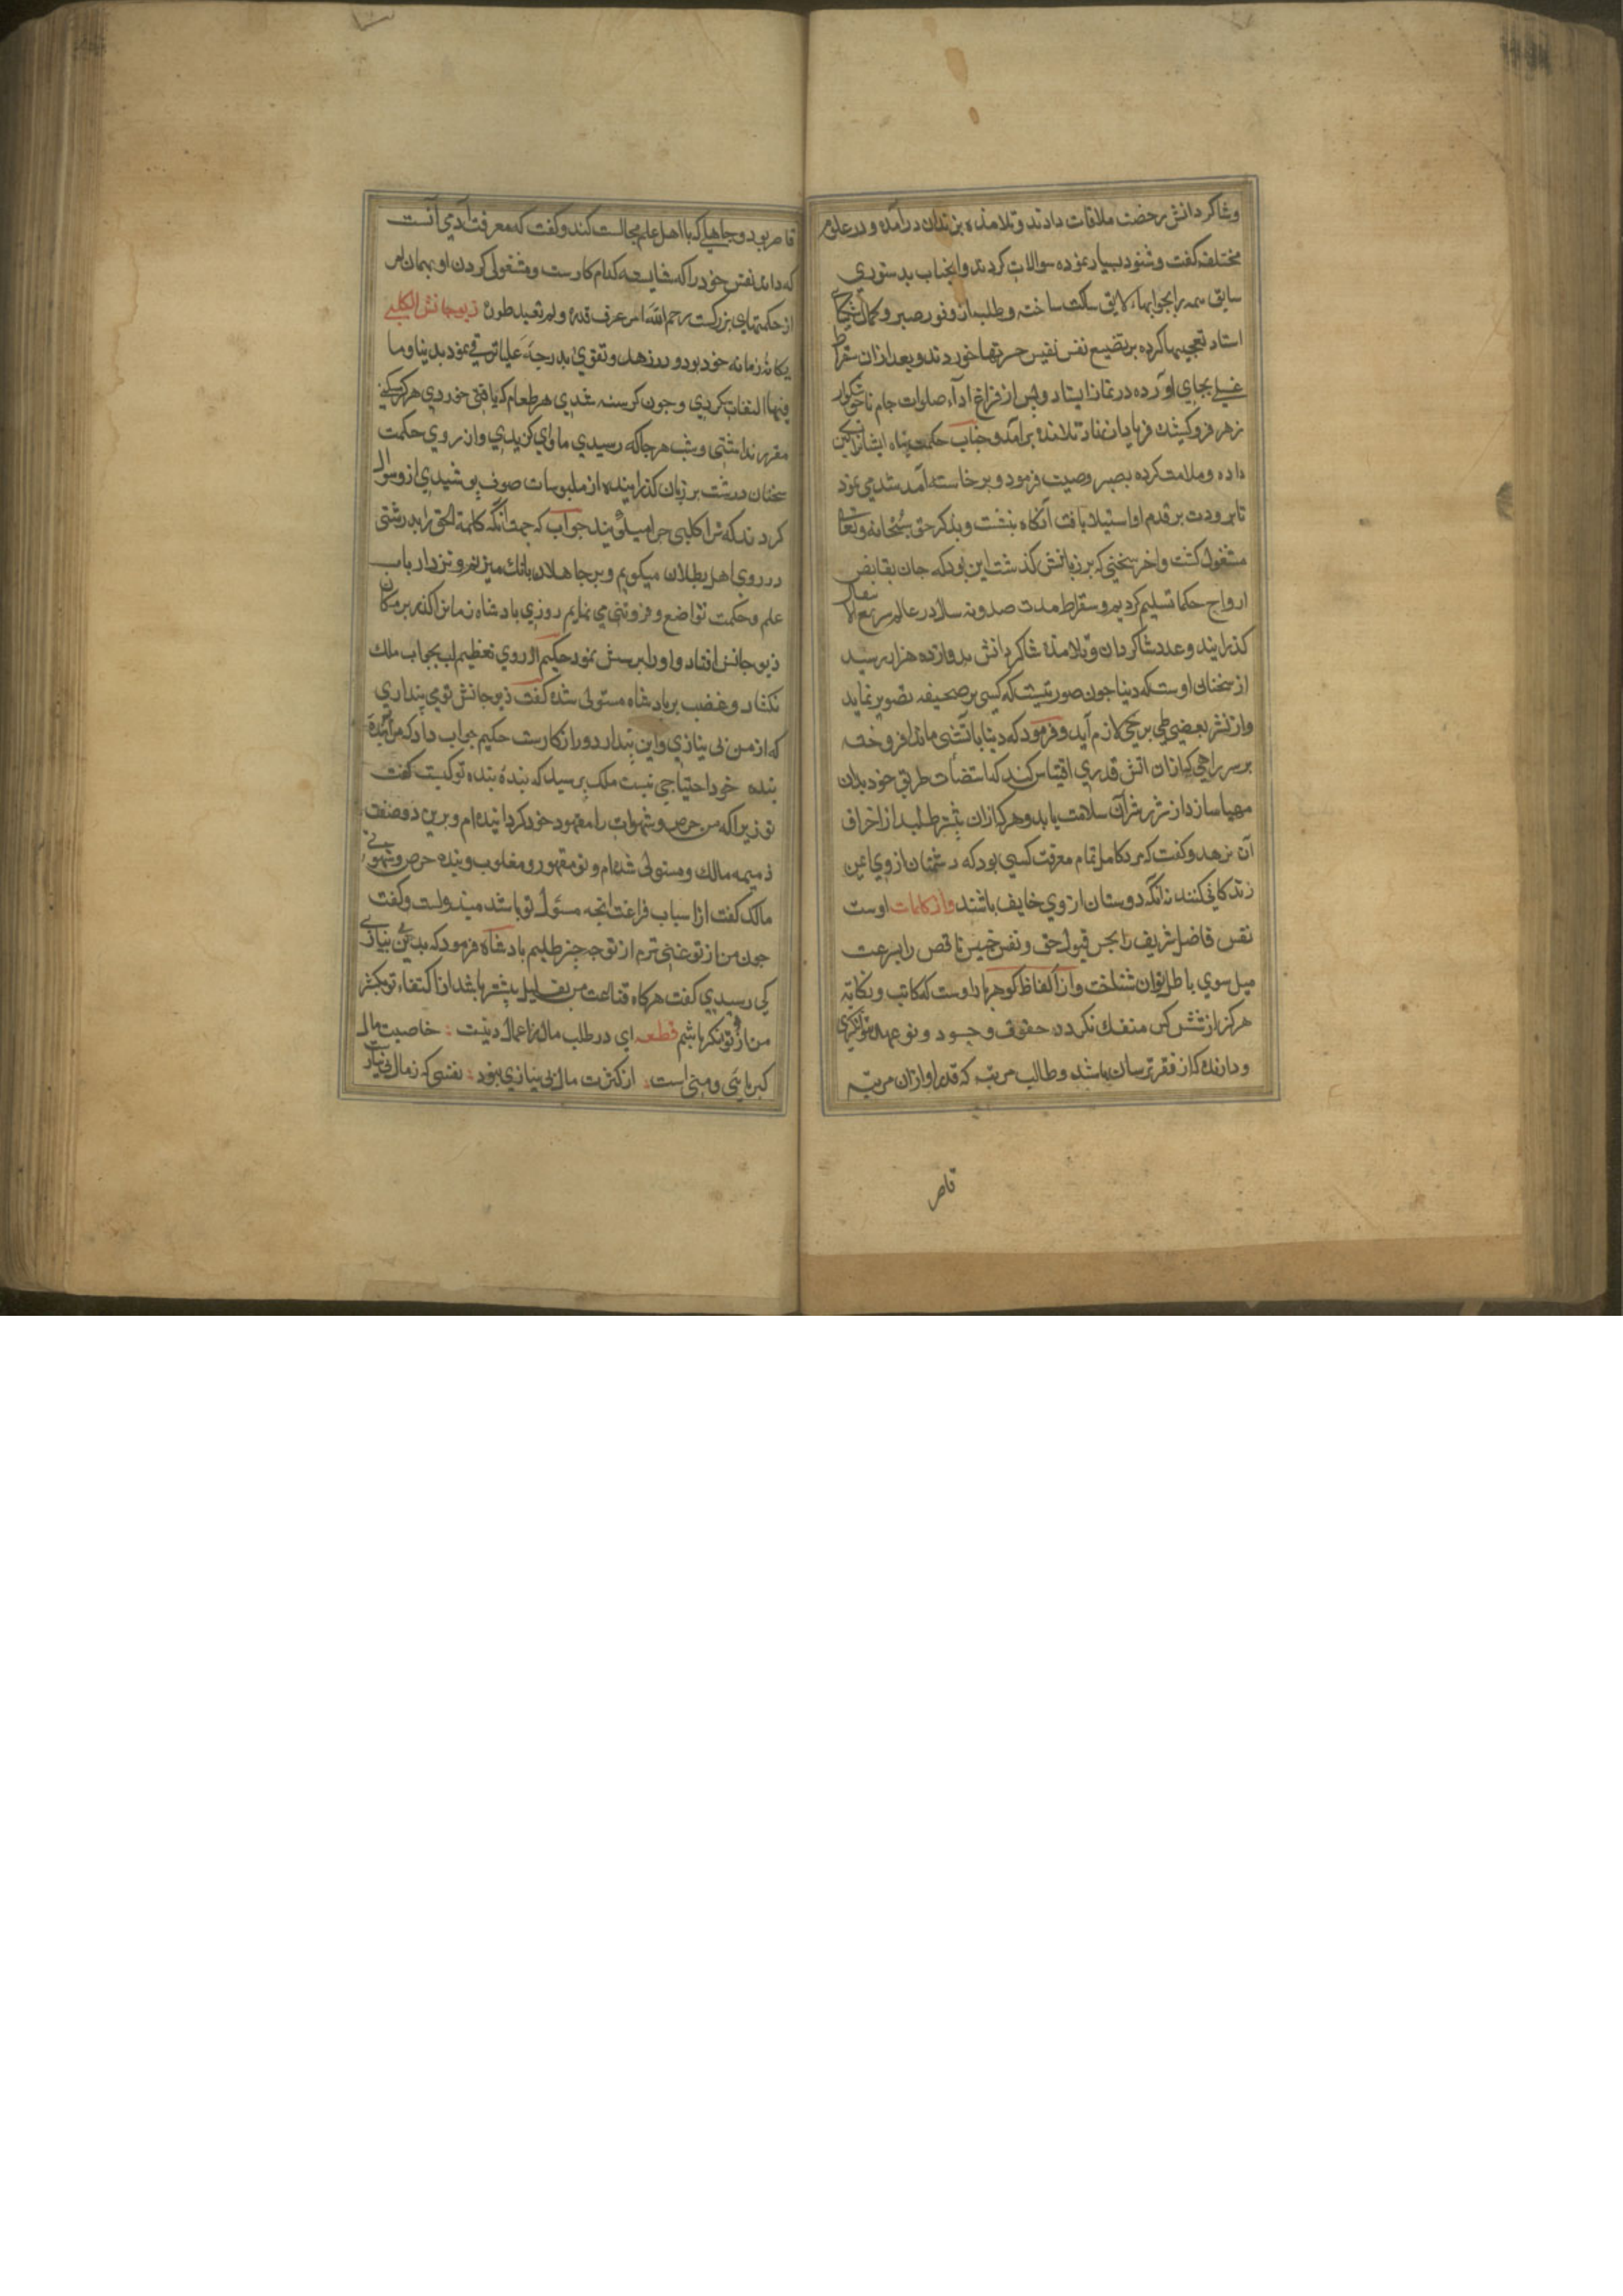 وشاکردانش رخصت ملاقات دادند وتلامذه بزندان درآمده ودر علوم
مختلفه کفت وشنود بسیار نموده سوالات کردند وانجناب بدستوری
سابق همه را بجوابهاء لایق ساکت ساخته وطلبه از وفور صبر وکمال
استاد تعجبها کرده بر تضییع نفس نفیس حسرتها خوردند وبعد ازان سقراط
غسل بجای آورده در نماز ایستاد وپس از فراغ اداء صلوات جام ناخوشکوار
زهر فروکشید فریاد از نهاد تلامذه برآمد وجناب حکمت پناه ایشانرا تسکین
داده وملامت کرده بصبر وصیت فرمود وبرخاسته آمد شدی نمود
تا برودت بر قدم او استیلا یافت آنکاه بنشست وبذکر حق سبحانه وتعالی
مشغول کشت واخر سخنی که بر زبانش کذشت این بود که جان بقابض
ارواح حکما تسلیم کردیم وسقراط مدت صد ونه سال در عالم سریع الانتقال
کذرانید وعدد شاکردان وتلامذه شاکردانش بدوازده هزار رسید
از سخنان اوست که دنیا جون صورتیست که کسی بر صحیفه تصویر نماید
واز نشر بعضی طی برخی لازم آید وفرمود که دنیا باتشی ماند افروخته
بر سر راهی که ازان اتش قدری اقتباس کند که استضات طریق خود بدان
مهیا سازد از شر شرر آن سلامت یابد وهر که ازان بیشتر طلبد از احراق
آن نرهد وکفت که مرد کامل تمام معرفت کسی بود که دشمنان از وی ایمن
زندکانی کنند نه آنکه دوستان از وی خایف باشند واز کلمات اوست
نفس فاضل شریف را بحسن قبول حق ونفس خسیس ناقص را بسرعت
میل سوی باطل توان شناخت واز الفاظ کوهربار اوست که کاتب ونکایه
هرکز از شش کس منفک نکردد حقود وحسود ونو عهد بتوانکری
ودارنده که از فقر ترسان باشد وطالب مرتبه که قدر او ازان مرتبه
قاصر
قاصر بود وجاهلی که با اهل علم مجالست کند وکفت که معرفت آدمی آنست
که داند نفس خود را که شایسته کدام کارست ومشغولی کردن او بهمان امر
از حکمتهای بزرکست رحم الله امرء عرف قدره ولم یتعد طوره ذیوجانش الکلبی
یکانهٔ زمانه خود بود ودر زهد وتقوی بدرجهٔ علیا ترقی نمود بدنیا وما
فیها التفات نکردی وجون کرسنه شدی هر طعام که یافتی خوردی هرکز مسکنی
مقرر نداشتی وشب هرجا که رسیدی ماوای کزیدی واز روی حکمت
سخنان درشت بر زبان کذرانیده از ملبوسات صوف پوشیدی ازو سوال
کردند که ترا کلبی چرا میکویند جواب که جهت آنکه کلمة الحق را بدرشتی
در روی اهل بطلان میکویم وبر جاهلان بانک میزنم ونزد ارباب
علم وحکمت تواضع وفروتنی می نمایم روزی بادشاه زمانرا کذر بر مکان
ذیوجانش افتاد واورا پرسش نمود حکیم از روی تعظیم لب بجواب ملک
نکشاد وغضب بر بادشاه مستولی شده کفت ذیوجانش تو می پنداری
که از من بی نیازی واین پندار دور از کارست حکیم جواب داد که مرا ببندهٔ
بنده خود احتیاجی نیست ملک پرسید که بندهٔ بنده تو کیست کفت
تو زیرا که من حرص وشهوات را مقهور خود کردانیده ام وبرین دو صفت
ذمیمه مالک ومستولی شده ام وتو مقهور ومغلوب وبنده حرص وشهوتی
مالک کفت از اسباب فراغت انجه مسئول تو باشد مبذولست وکفت
جون من از تو غنی ترم از تو چه چیز طلبم بادشاه فرمود که بدین بی نیازی
کی رسیدی کفت هرکاه قناعت من بقلیل بیشتر باشد از اکتفاء تو بکثیر
من از تو توانکر باشم قطعه ای در طلب مال ز اعمال دنیت : خاصیت مال
کبریایی ومنی است : از کثرت مال بی نیازی نبود : نفسی که ز مال بی نیاز